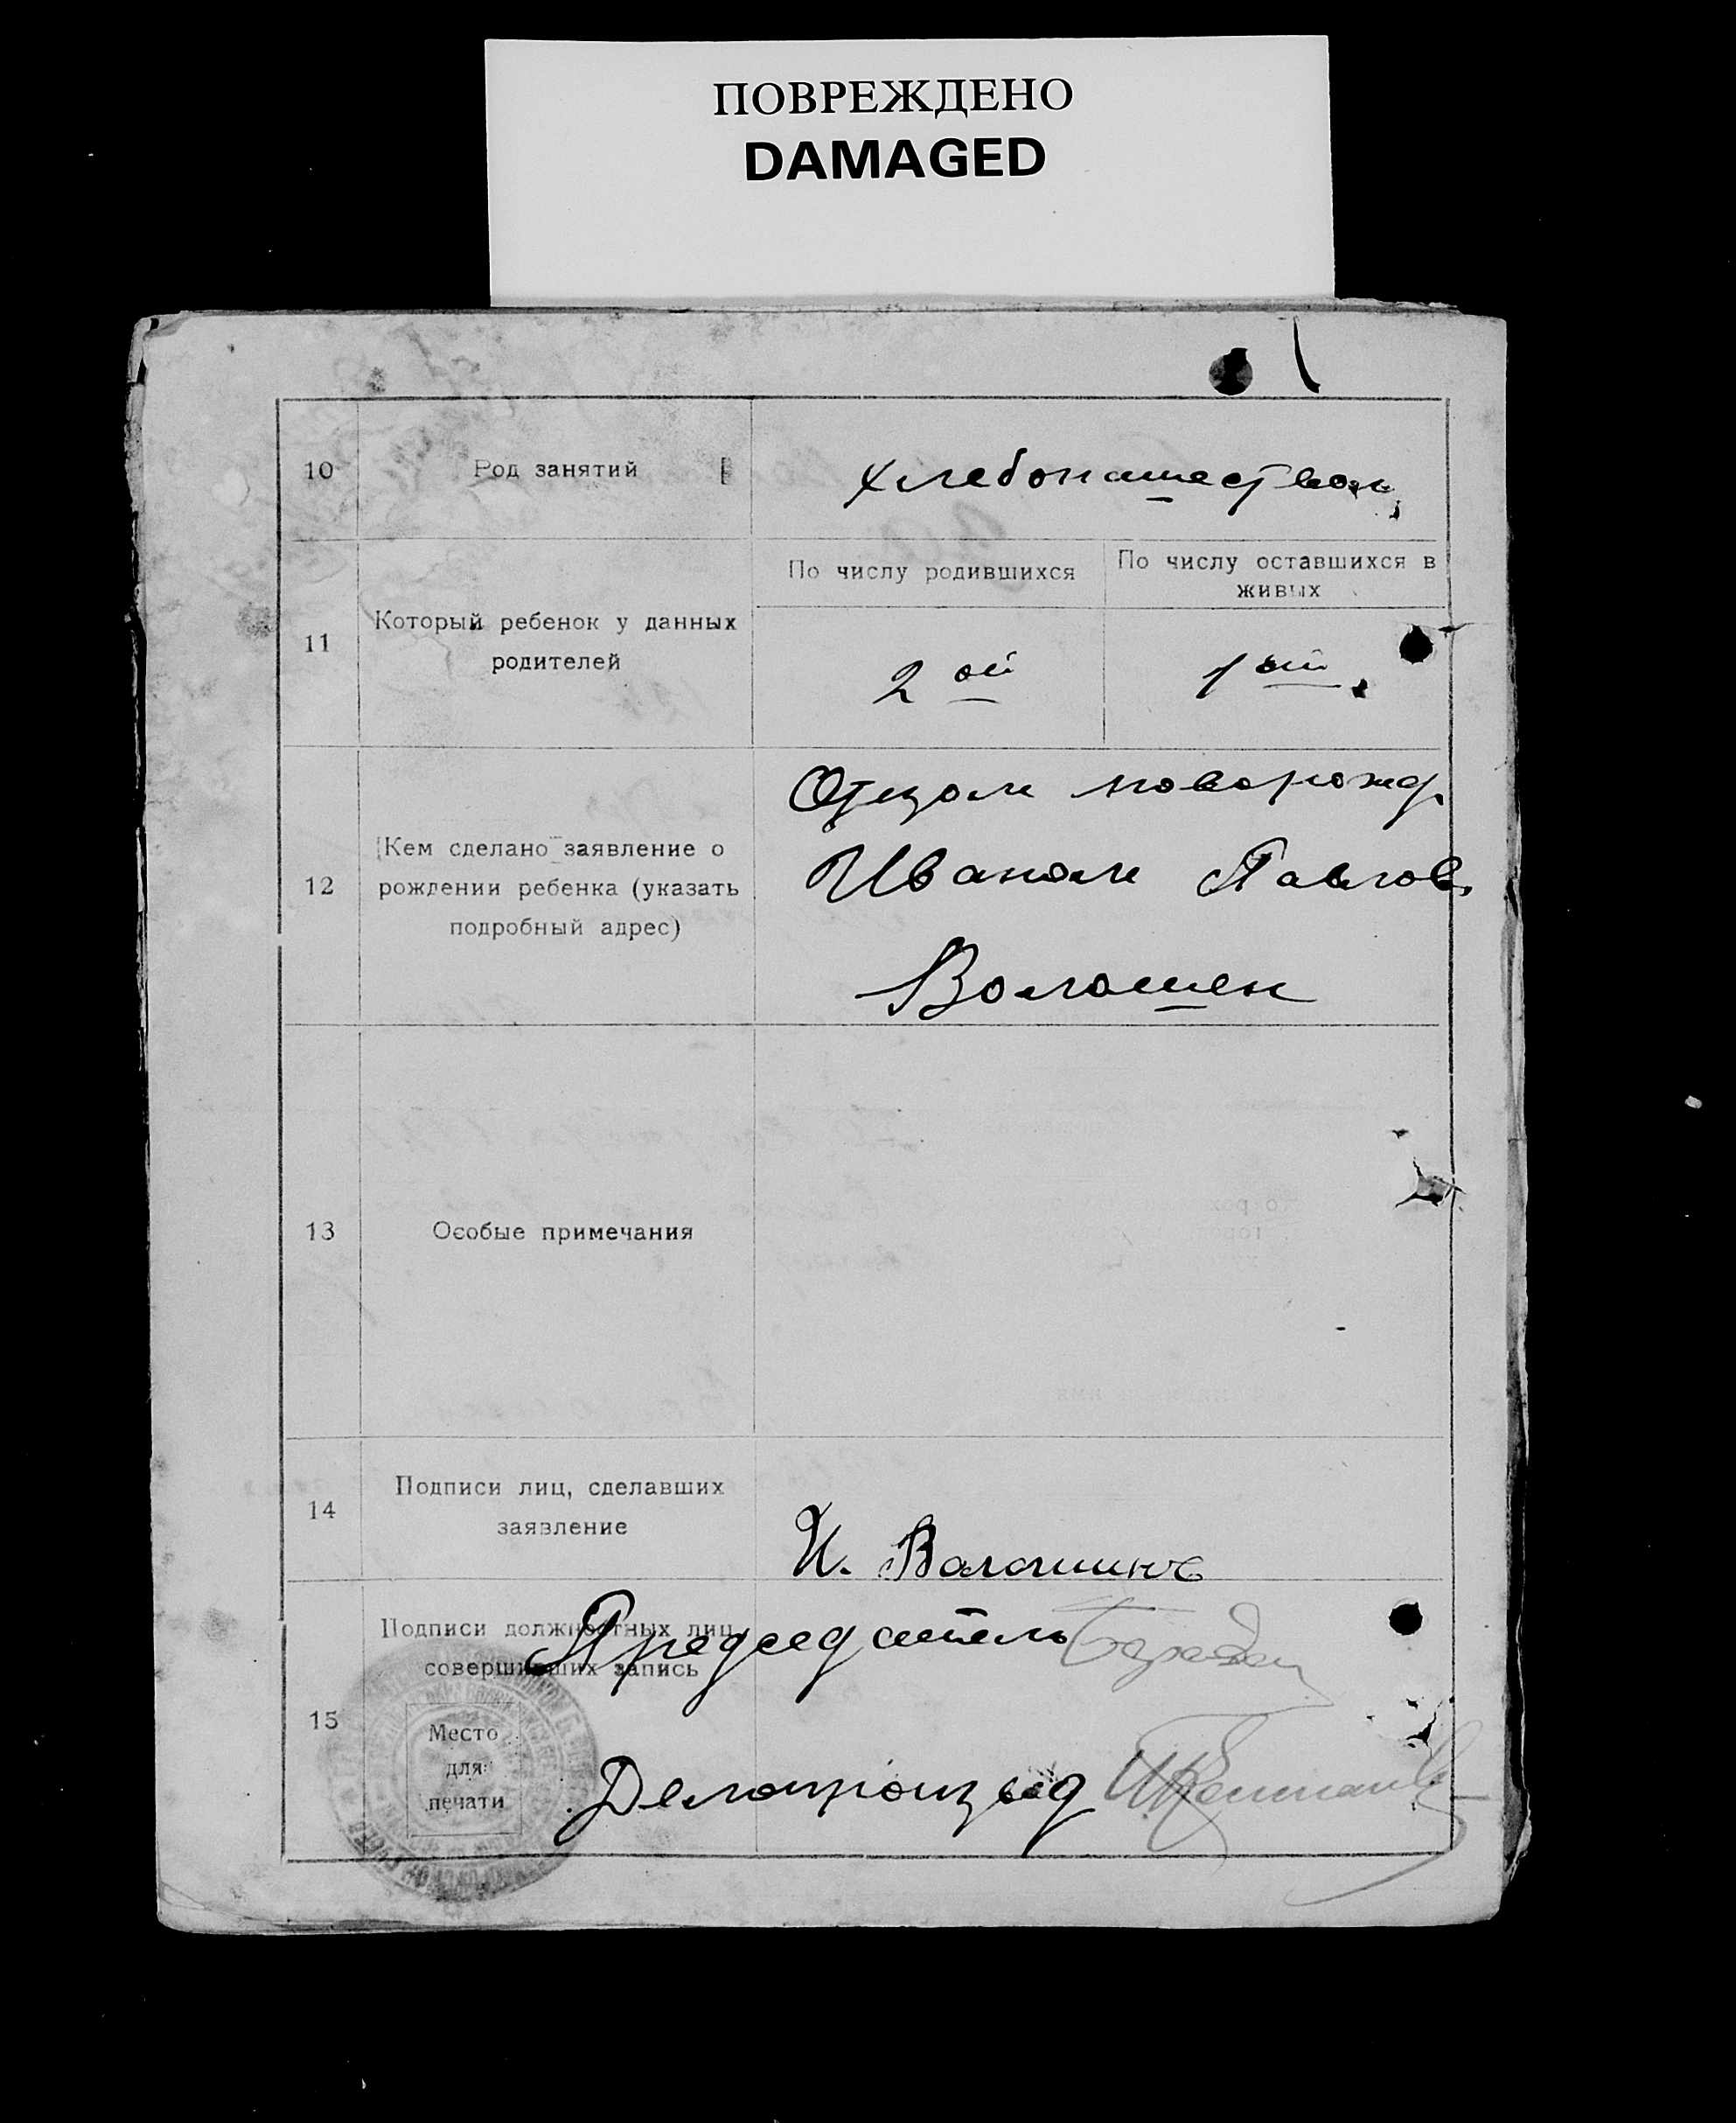 ПОВРЕЖДЕНО
DAMAGED
10
Род занятий
хлебопашеством
11
Который ребенок у данных
родителей
По числу родившихся
По числу оставшихся в
живых
2 ой
1 ый
12
Кем сделано заявление о
рождении ребенка (указать
подробный адрес)
Отцомноворожд.
Иваном Павлов.
Волошен
13
Особые примечания
14
Подписи лиц, сделавших
заявление
И. Волошинъ
15
Подписи должностных лиц
совершивших запись
Председатель
Место
для
печати
Делопроизвод